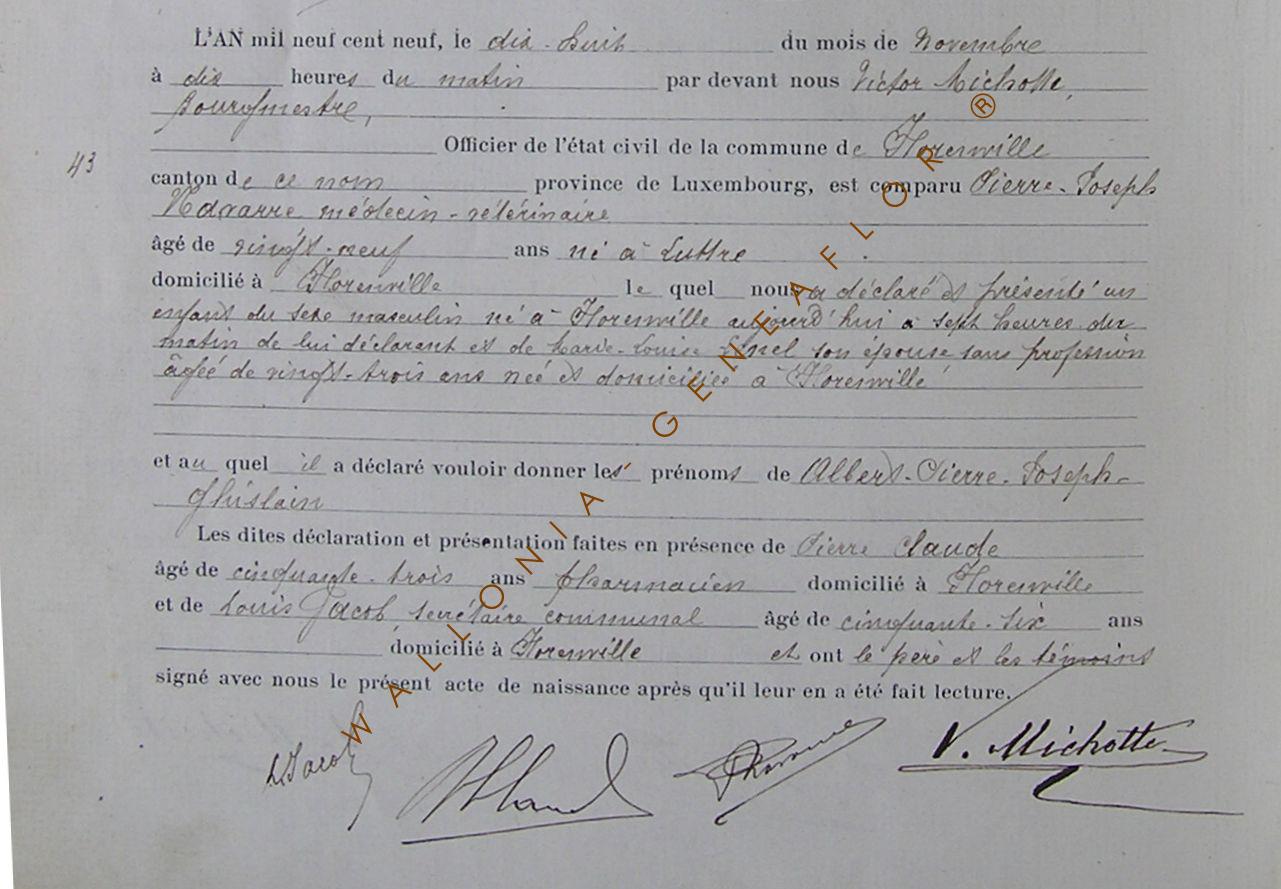 L'AN mil neuf cent neuf, le dix-huit du mois de Novembre
à dix heures du matin par devant nous Victor Michotte,
Bourgmestre,
Officier de l'état civil de la commune de Florenville
43
canton de ce nom province de Luxembourg, est comparu Pierre-Joseph
Navarre médecin-vétérinaire
âgé de vingt-neuf ans né à Luttre
domicilié à Florenville le quel nous a déclaré et présenté un
enfant du sexe masculin né à Florenville aujourd'hui à sept heures du
matin de lui déclarant et de Marie-Louise son épouse sans profession
âgée de vingt-trois ans née et domiciliée à Florenville
et au quel il a déclaré vouloir donner les prénoms de Albert-Pierre-Joseph-
Ghislain
Les dites déclaration et présentation faites en présence de Pierre Claude
âgé de cinquante-trois ans pharmacien domicilié à Florenville
et de Louis Jacob, secrétaire communal âgé de cinquante-six ans
domicilié à Florenville et ont le père et les témoins
signé avec nous le présent acte de naissance après qu'il leur en a été fait lecture.
L Jacob V. Michotte
WALLONIA GENEAFLOR ®